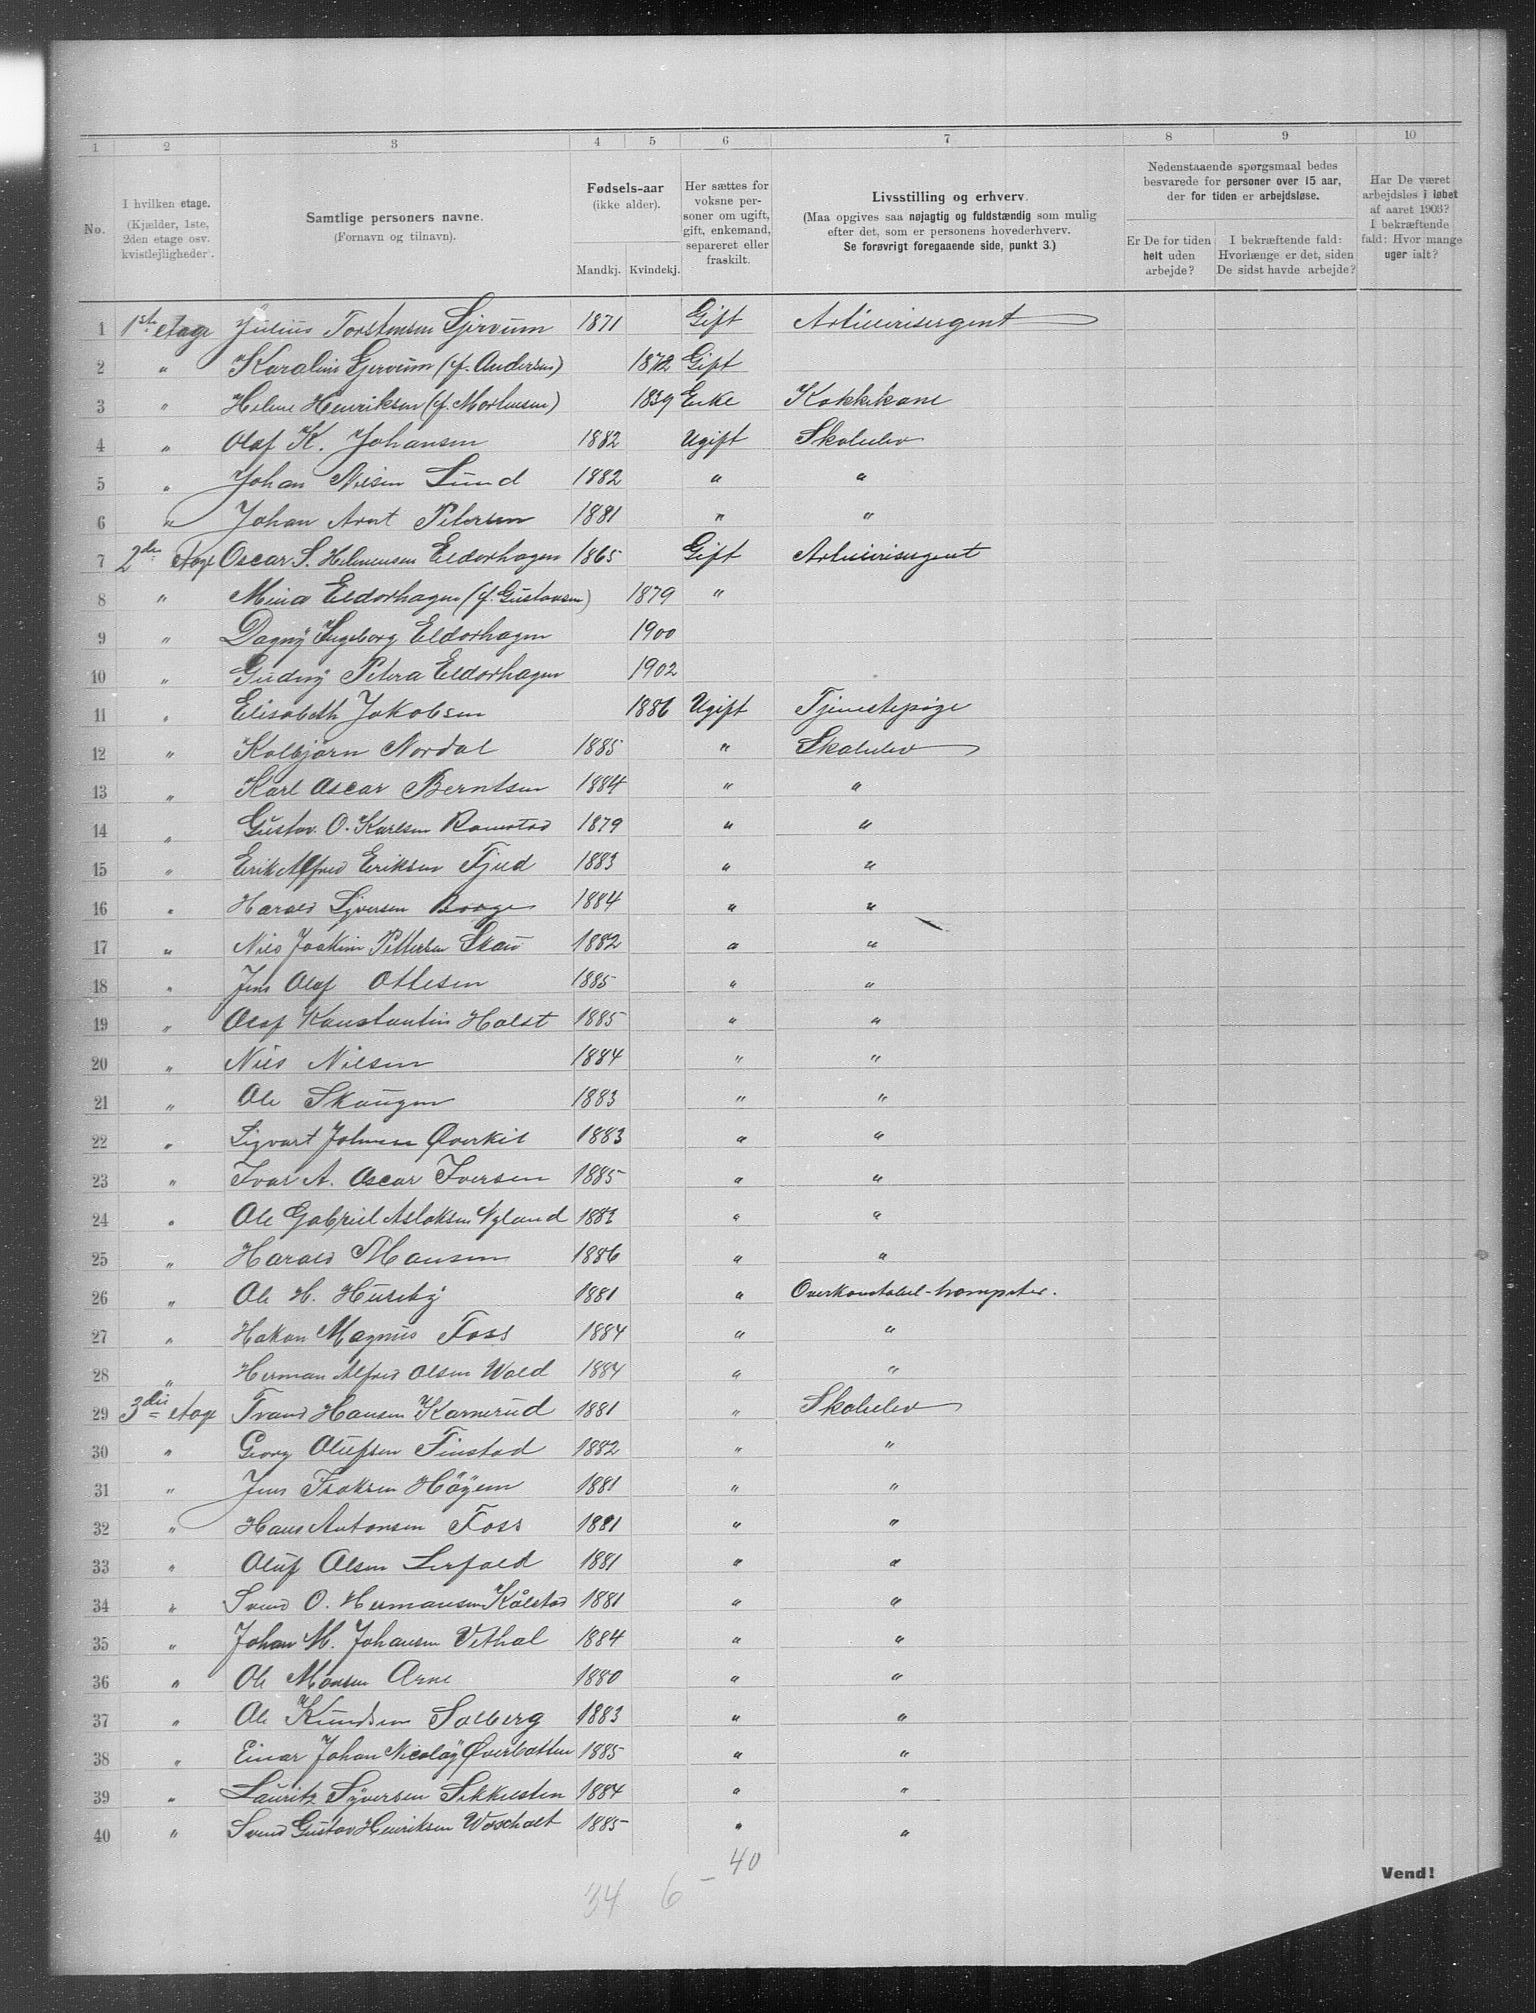 1 2 3 4 5 6 7 8 9 10
No.
I hvilken etage.
(Kjælder, 1ste,
2den etage osv.
kvistlejligheder.
Samtlige personers navne.
(Fornavn og tilnavn).
Fødsels-aar
(ikke alder).
Mandkj. Kvindekj.
Her sættes for
voksne per-
soner om ugift,
gift, enkemand,
separeret eller
fraskilt.
Livsstilling og erhverv.
(Maa opgives saa nøjagtig og fuldstændig som mulig
efter det, som er personens hovederhverv.
Se forøvrigt foregaaende side, punkt 3.)
Nedenstaaende spørgsmaal bedes
besvarede for personer over 15 aar,
der for tiden er arbejdsløse.
Er De for tiden
helt uden
arbejde?
I bekræftende fald:
Hvorlænge er det, siden
De sidst havde arbejde?
Har De været
arbejdsløs i løbet
af aaret 1903?
I bekræftende
fald: Hvor mange
uger ialt?
1 1ste etage Julius Torstensen Gjervum 1871 Gift Artillerisergent
2 " Karolini Gjervum (f. Andersen) 1872 Gift
3 " Helene Henriksen (f. Mortensen) 1839 Enke Kokkekone
4 " Olaf K. Johansen 1882 Ugift Skoleelev
5 " Johan Nilsen Lund 1882 " "
6 " Johan Arnt Petersen 1881 " "
7 2den etage Oscar S. Helmensen Eldorhagen 1865 Gift Artillerisergent
8 " Mina Eldorhagen (f. Gustavsen) 1879 "
9 " Dagny Ingeborg Eldorhagen 1900
10 " Gudny Petra Eldorhagen 1902
11 " Elisabeth Jakobsen 1886 Ugift Tjenestepige
12 " Kolbjørn Nordal 1885 " Skoleelev
13 " Karl Oscar Berntsen 1884 " "
14 " Gustav O. Karlsen Ramstad 1879 " "
15 " Erik Alfred Eriksen Fjeld 1883 " "
16 " Harald Syversen Borge 1884 " "
17 " Nils Joakim Pettersen Skau 1882 " "
18 " Jens Olaf Ottesen 1885 " "
19 " Olaf Konstantin Holst 1885 " "
20 " Nils Nilsen 1884 " "
21 " Ole Skaugen 1883 " "
22 " Sigvart Johnsen Øverkil 1883 " "
23 " Ivar A. Oscar Iversen 1885 " "
24 " Ole Gabriel Aslaksen Nyland 1883 " "
25 " Harald Monsen 1886 " "
26 " Ole H. Huseby 1881 " Overkonstabel-trompeter.
27 " Hakon Magnus Foss 1884 " "
28 " Herman Alfred Olsen Wold 1884 " "
29 3die etage Trond Hansen Karnerud 1881 " Skoleelev
30 " Georg Olufsen Finstad 1882 " "
31 " Jens Isaksen Höyem 1881 " "
32 " Hans Antonsen Foss 1881 " "
33 " Oluf Olsen Lerfald 1881 " "
34 " Svend O. Hermansen Kålstad 1881 " "
35 " Johan M. Johansen Vethal 1884 " "
36 " Ole Monsen Arne 1880 " "
37 " Ole Knudsen Solberg 1883 " "
38 " Einar Johan Nicolay Øverbotten 1885 " "
39 " Lauritz Syversen Sikkesten 1884 " "
40 " Svend Gustav Henriksen 1885 " "
40
34 6
Vend!